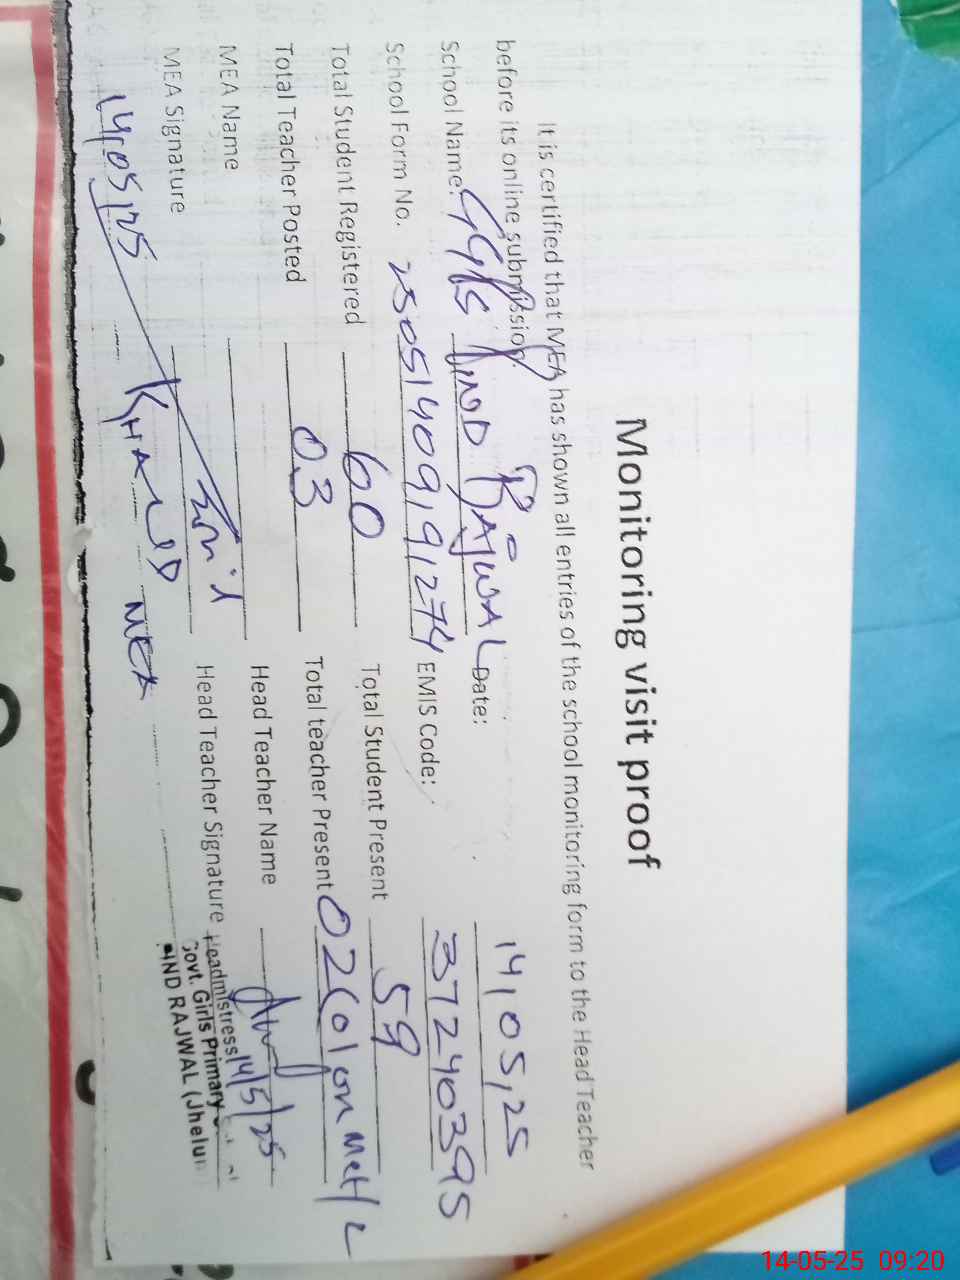 Monitoring visit proof
It is certified that MEA has shown all entries of the school monitoring form to the Head Teacher
before its online submission.
School Name: GGPS HIND RAJWAL Date: 14,05,25
School Form No. EMIS Code: 37240395
Total Student Registered 60 Total Student Present 59
Total Teacher Posted 03 Total teacher Present 02(01 on
MEA Name Head Teacher Name
MEA Signature Head Teacher Signature
Headmistress 14/5/25
Govt. Girls Primary
HIND RAJWAL (Jhelu
14,05,25 KHALID MEA
14-05-25 09:20